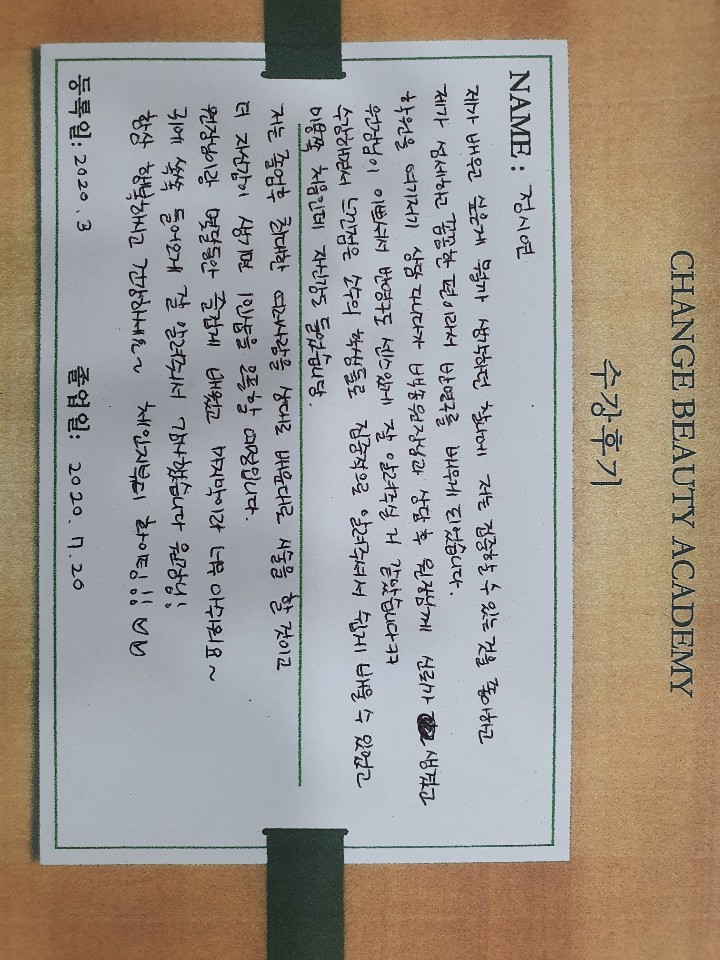 CHANGE BEAUTY ACADEMY
수강후기
NAME : 정시연
제가 배우고 싶은게 뭘까 생각하던 찰나에 저는 집중할 수 있는 것을 좋아하고
제가 섬세하고 꼼꼼한 편이라서 반영구를 배우게 되었습니다.
학원을 여기저기 상담 다니다가 백송원장님과 상담 후 원장님께 신뢰가 생겼고
원장님이 이쁘셔서 반영구도 센스있게 잘 알려주실 거 같았습니다ㅋㅋ
수강하면서 느낀점은 소수의 학생들로 집중적으로 알려주셔서 쉽게 배울 수 있었고
미용쪽 처음인데 자신감도 들었습니당.
저는 졸업후 최대한 여러사람을 상대로 배운대로 시술을 할 것이고
더 자신감이 생기면 1인샵을 오픈할 예정입니다.
원장님이랑 몇달동안 즐겁게 배웠고 마지막이라 너무 아쉬워요~
귀에 쏙쏙 들어오게 잘 알려줘서 감사했습니다 원장님!
항상 행복하시고 건강하세요~ 체인지뷰티 화이팅!!
등록일: 2020. 3 졸업일: 2020. 7. 20